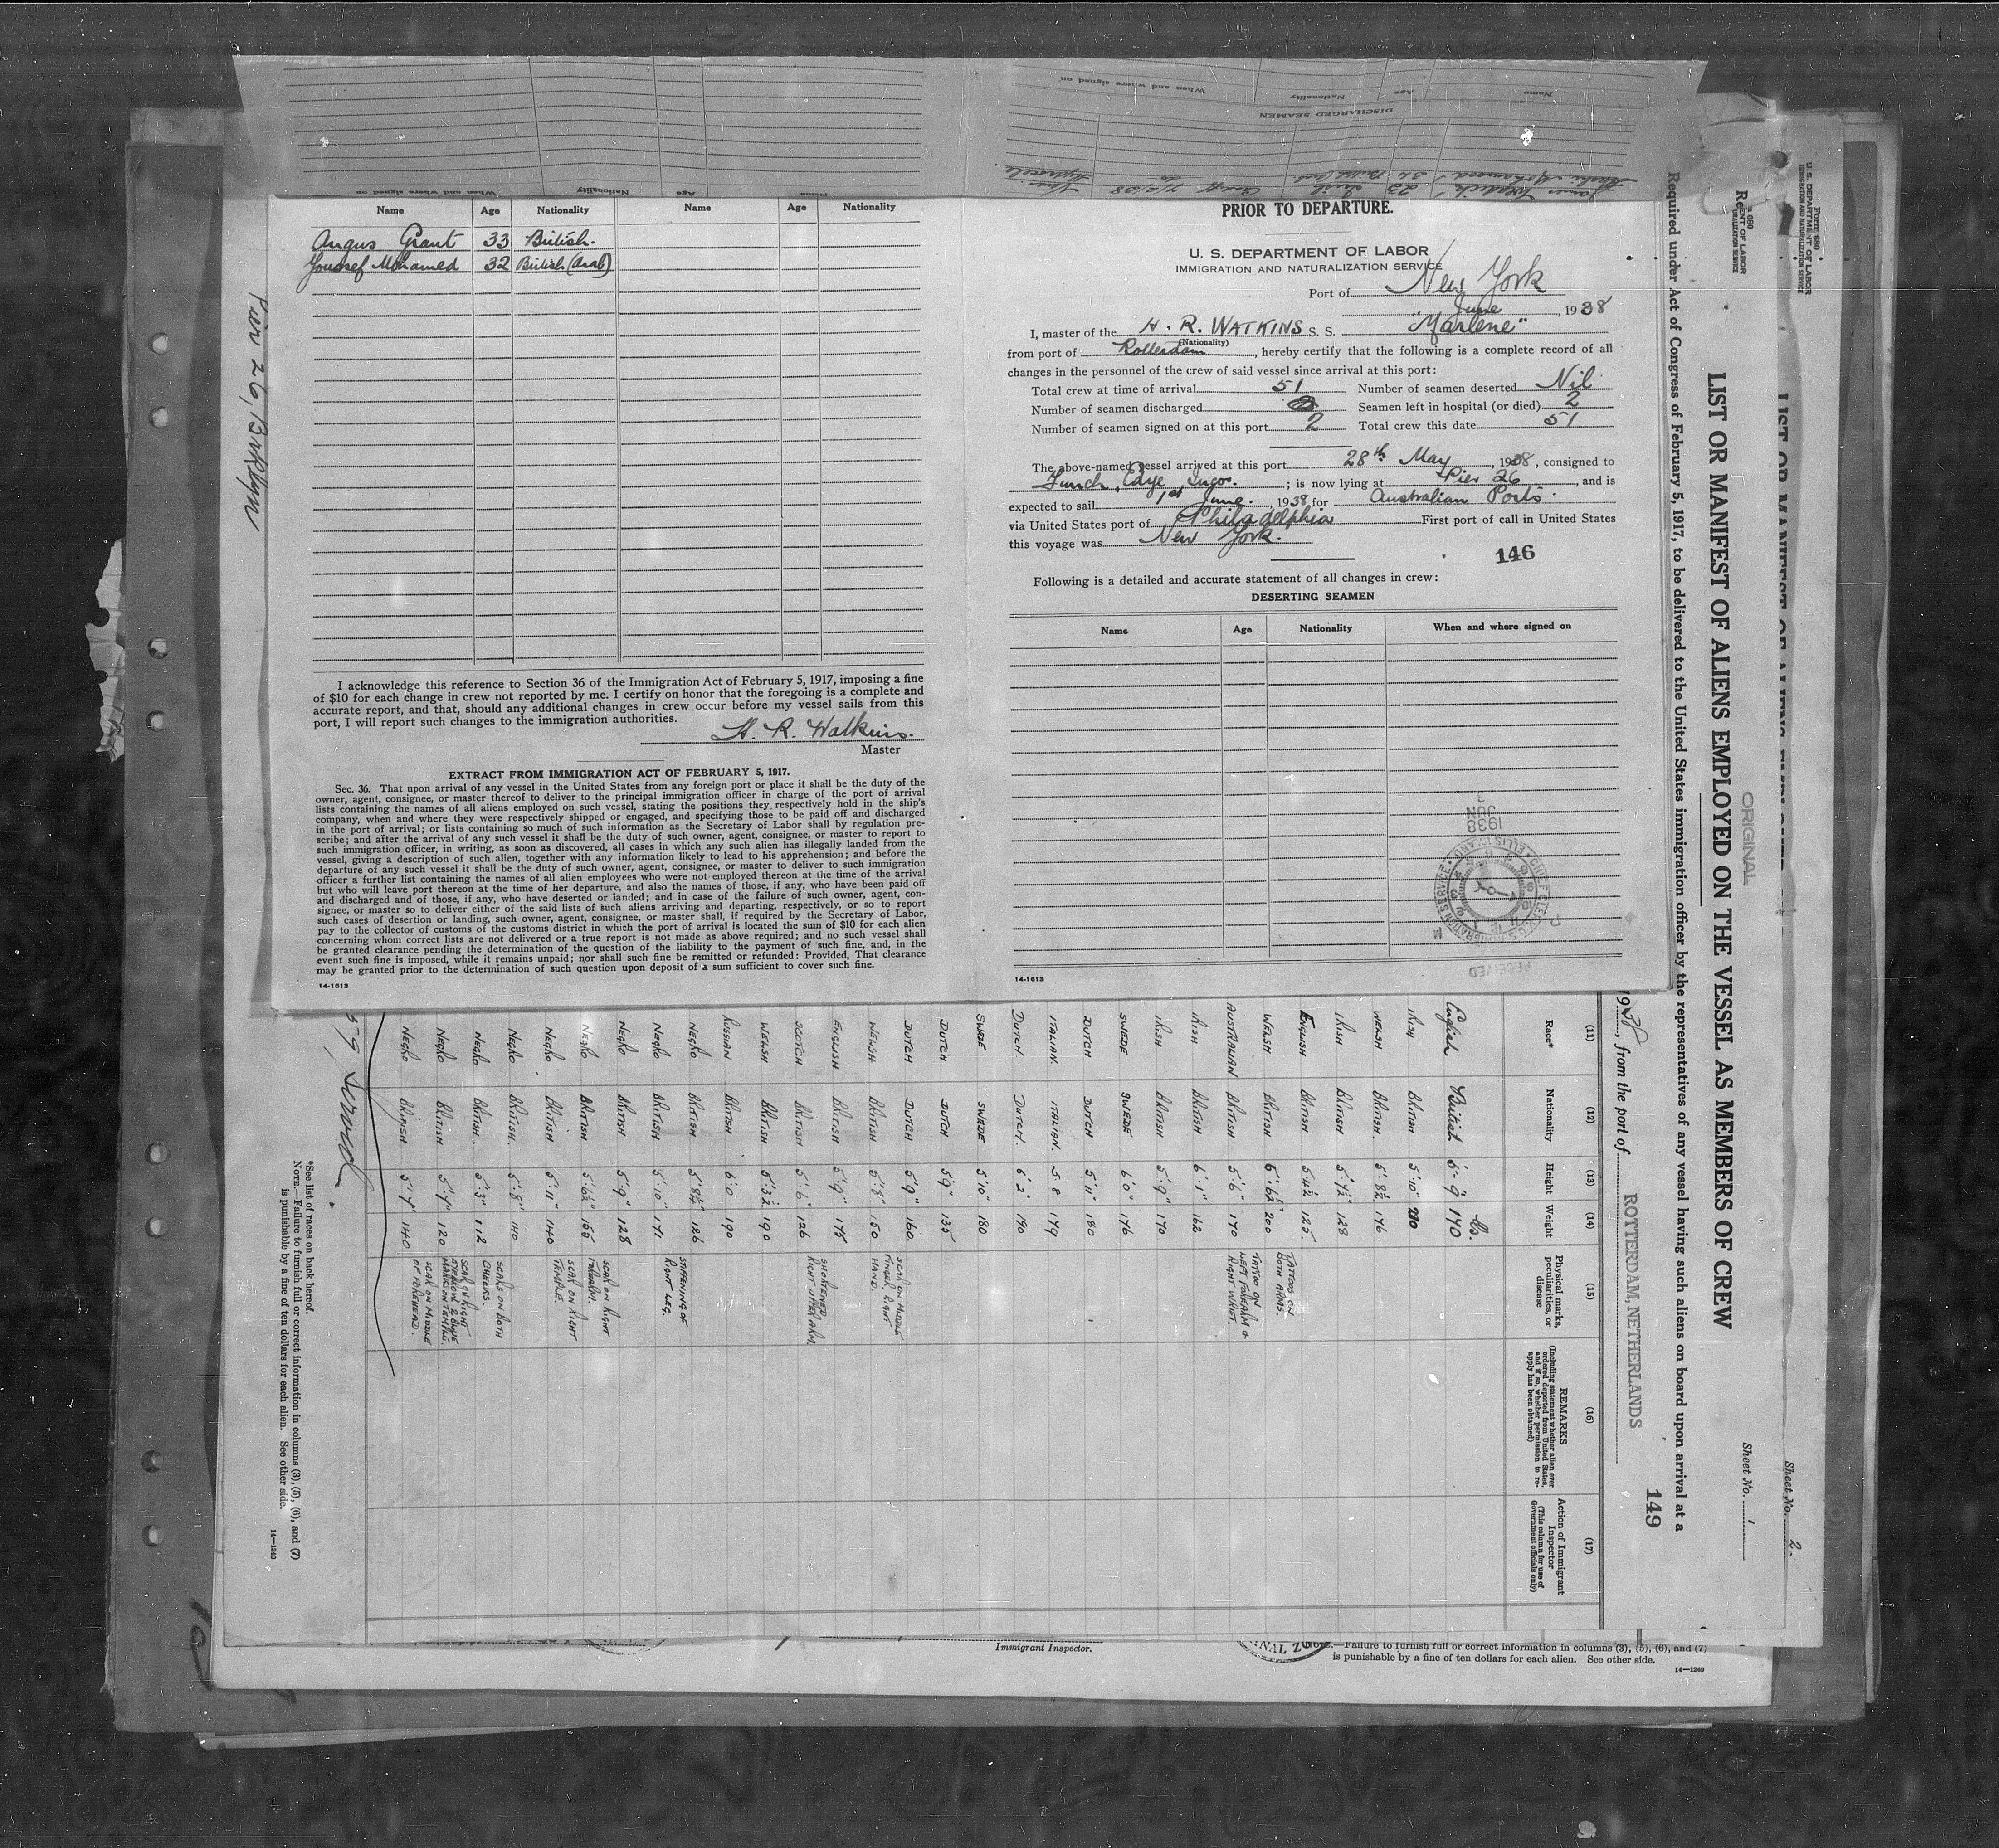 Name Age Nationality Name Age Nationality
Angus Grant 33 British.
Youssef Mohamed 32 British (Arab)
I acknowledge this reference to Section 36 of the Immigration Act of February 5, 1917, imposing a fine
of $10 for each change in crew not reported by me. I certify on honor that the foregoing is a complete and
accurate report, and that, should any additional changes in crew occur before my vessel sails from this
port, I will report such changes to the immigration authorities.
H. R. Watkins.
Master
EXTRACT FROM IMMIGRATION ACT OF FEBRUARY 5, 1917.
Sec. 36. That upon arrival of any vessel in the United States from any foreign port or place it shall be the duty of the
owner, agent, consignee, or master thereof to deliver to the principal immigration officer in charge of the port of arrival
lists containing the names of all aliens employed on such vessel, stating the positions they respectively hold in the ship's
company, when and where they were respectively shipped or engaged, and specifying those to be paid off and discharged
in the port of arrival; or lists containing so much of such information as the Secretary of Labor shall by regulation pre-
scribe; and after the arrival of any such vessel it shall be the duty of such owner, agent, consignee, or master to report to
such immigration officer, in writing, as soon as discovered, all cases in which any such alien has illegally landed from the
vessel, giving a description of such alien, together with any information likely to lead to his apprehension; and before the
departure of any such vessel it shall be the duty of such owner, agent, consignee, or master to deliver to such immigration
officer a further list containing the names of all alien employees who were not employed thereon at the time of the arrival
but who will leave port thereon at the time of her departure, and also the names of those, if any, who have been paid off
and discharged and of those, if any, who have deserted or landed; and in case of the failure of such owner, agent, con-
signee, or master so to deliver either of the said lists of such aliens arriving and departing, respectively, or so to report
such cases of desertion or landing, such owner, agent, consignee, or master shall, if required by the Secretary of Labor,
pay to the collector of customs of the customs district in which the port of arrival is located the sum of $10 for each alien
concerning whom correct lists are not delivered or a true report is not made as above required; and no such vessel shall
be granted clearance pending the determination of the question of the liability to the payment of such fine, and, in the
event such fine is imposed, while it remains unpaid; nor shall such fine be remitted or refunded: Provided, That clearance
may be granted prior to the determination of such question upon deposit of a sum sufficient to cover such fine.
14-1613
PRIOR TO DEPARTURE.
U. S. DEPARTMENT OF LABOR
IMMIGRATION AND NATURALIZATION SERVICE
Port of New York
June, 1938
I, master of the H. R. WATKINS S. S. "Marlene"
(Nationality)
from port of Rotterdam, hereby certify that the following is a complete record of all
changes in the personnel of the crew of said vessel since arrival at this port:
Total crew at time of arrival 51 Number of seamen deserted Nil
Number of seamen discharged Seamen left in hospital (or died) 2
Number of seamen signed on at this port 2 Total crew this date 51
The above-named vessel arrived at this port 28th May, 1938, consigned to
Funch, Edye ; is now lying at Pier 26, and is
expected to sail 1st June. , 1938, for Australian Ports.
via United States port of Philadelphia First port of call in United States
this voyage was New York.
146
Following is a detailed and accurate statement of all changes in crew:
DESERTING SEAMEN
Name Age Nationality When and where signed on
RECEIVED
1938 JUN
14-1613
DISCHARGED SEAMEN
Name Age Nationality When and where signed on
Name Age Nationality When and where signed on
Pier 26, Brklyn
Form 680
U. S. DEPARTMENT OF LABOR
IMMIGRATION AND NATURALIZATION SERVICE
Sheet No. 2.
ORIGINAL
Sheet No. 1
LIST OR MANIFEST OF ALIENS EMPLOYED ON THE VESSEL AS MEMBERS OF CREW
Required under Act of Congress of February 5, 1917, to be delivered to the United States immigration officer by the representatives of any vessel having such aliens on board upon arrival at a
149
1938, from the port of ROTTERDAM, NETHERLANDS
(11) (12) (13) (14) (15) (16) (17)
Race* Nationality Height Weight Physical marks, peculiarities, or disease REMARKS (Including statement whether alien ever ordered deported from United States, and if so, whether permission to re-apply has been obtained) Action of Immigrant Inspector (This column for use of Government officials only)
English British 5-9 140 lbs.
IRISH BRITISH 5'10" 210
WELSH BRITISH. 5'8½ 176
IRISH BRITISH 5'7½" 128
ENGLISH BRITISH 5'4½ 125 TATTOOS ON BOTH ARMS.
WELSH BRITISH 5'6½" 200 TATTOO ON LEFT FOREARM & RIGHT WRIST.
AUSTRALIAN BRITISH 5'6" 170
IRISH BRITISH 6'1" 162
IRISH BRITISH 5'9" 170
SWEDE SWEDE 6'0" 176
DUTCH DUTCH 5'11" 180
ITALIAN. ITALIAN. 5'8 179
DUTCH DUTCH. 6'2" 190
SWEDE SWEDE 5'10" 180
DUTCH DUTCH 5'9" 135
DUTCH DUTCH 5'9" 160 SCAR ON MIDDLE FINGER RIGHT HAND.
WELSH BRITISH 5'8" 150
ENGLISH BRITISH 5'9" 175 SHORTENED RIGHT UPPER ARM
SCOTCH BRITISH 5'6" 126
WELSH BRITISH 5'3½ 190
RUSSIAN BRITISH 6'0 190
NEGRO BRITISH 5'8½" 126 STIFFENING OF RIGHT LEG.
NEGRO BRITISH 5'10" 171
NEGRO BRITISH 5'9" 128 SCAR ON RIGHT FOREARM.
NEGRO BRITISH 5'6½" 155 SCAR ON RIGHT TEMPLE.
NEGRO BRITISH 5'11" 140
NEGRO BRITISH. 5'8" 140 SCARS ON BOTH CHEEKS.
NEGRO BRITISH. 5'3" 112
NEGRO BRITISH 5'7" 120 SCAR ON MIDDLE OF FOREHEAD.
NEGRO BRITISH 5'7" 140
*See list of races on back hereof.
NOTE.—Failure to furnish full or correct information in columns (3), (5), (6), and (7)
is punishable by a fine of ten dollars for each alien. See other side.
14-1240
Immigrant Inspector.
.—Failure to furnish full or correct information in columns (3), (5), (6), and (7)
is punishable by a fine of ten dollars for each alien. See other side.
14-1240